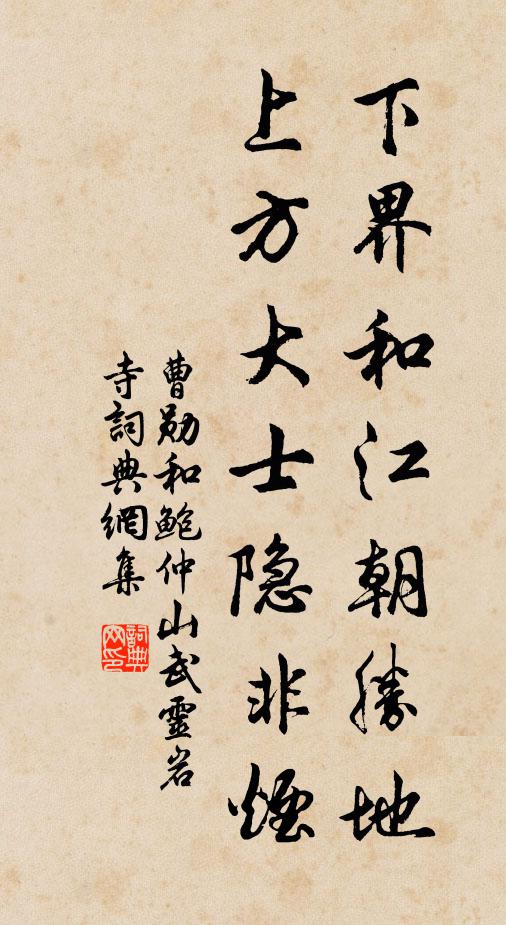 下界和江朝勝地
上方大士隐非煙
曹勋和鲍仲山武靈岩
寺詞典網集
詞典網印